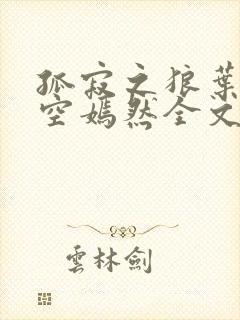 孤寂之狼葉
空嫣然全文
雲林劍